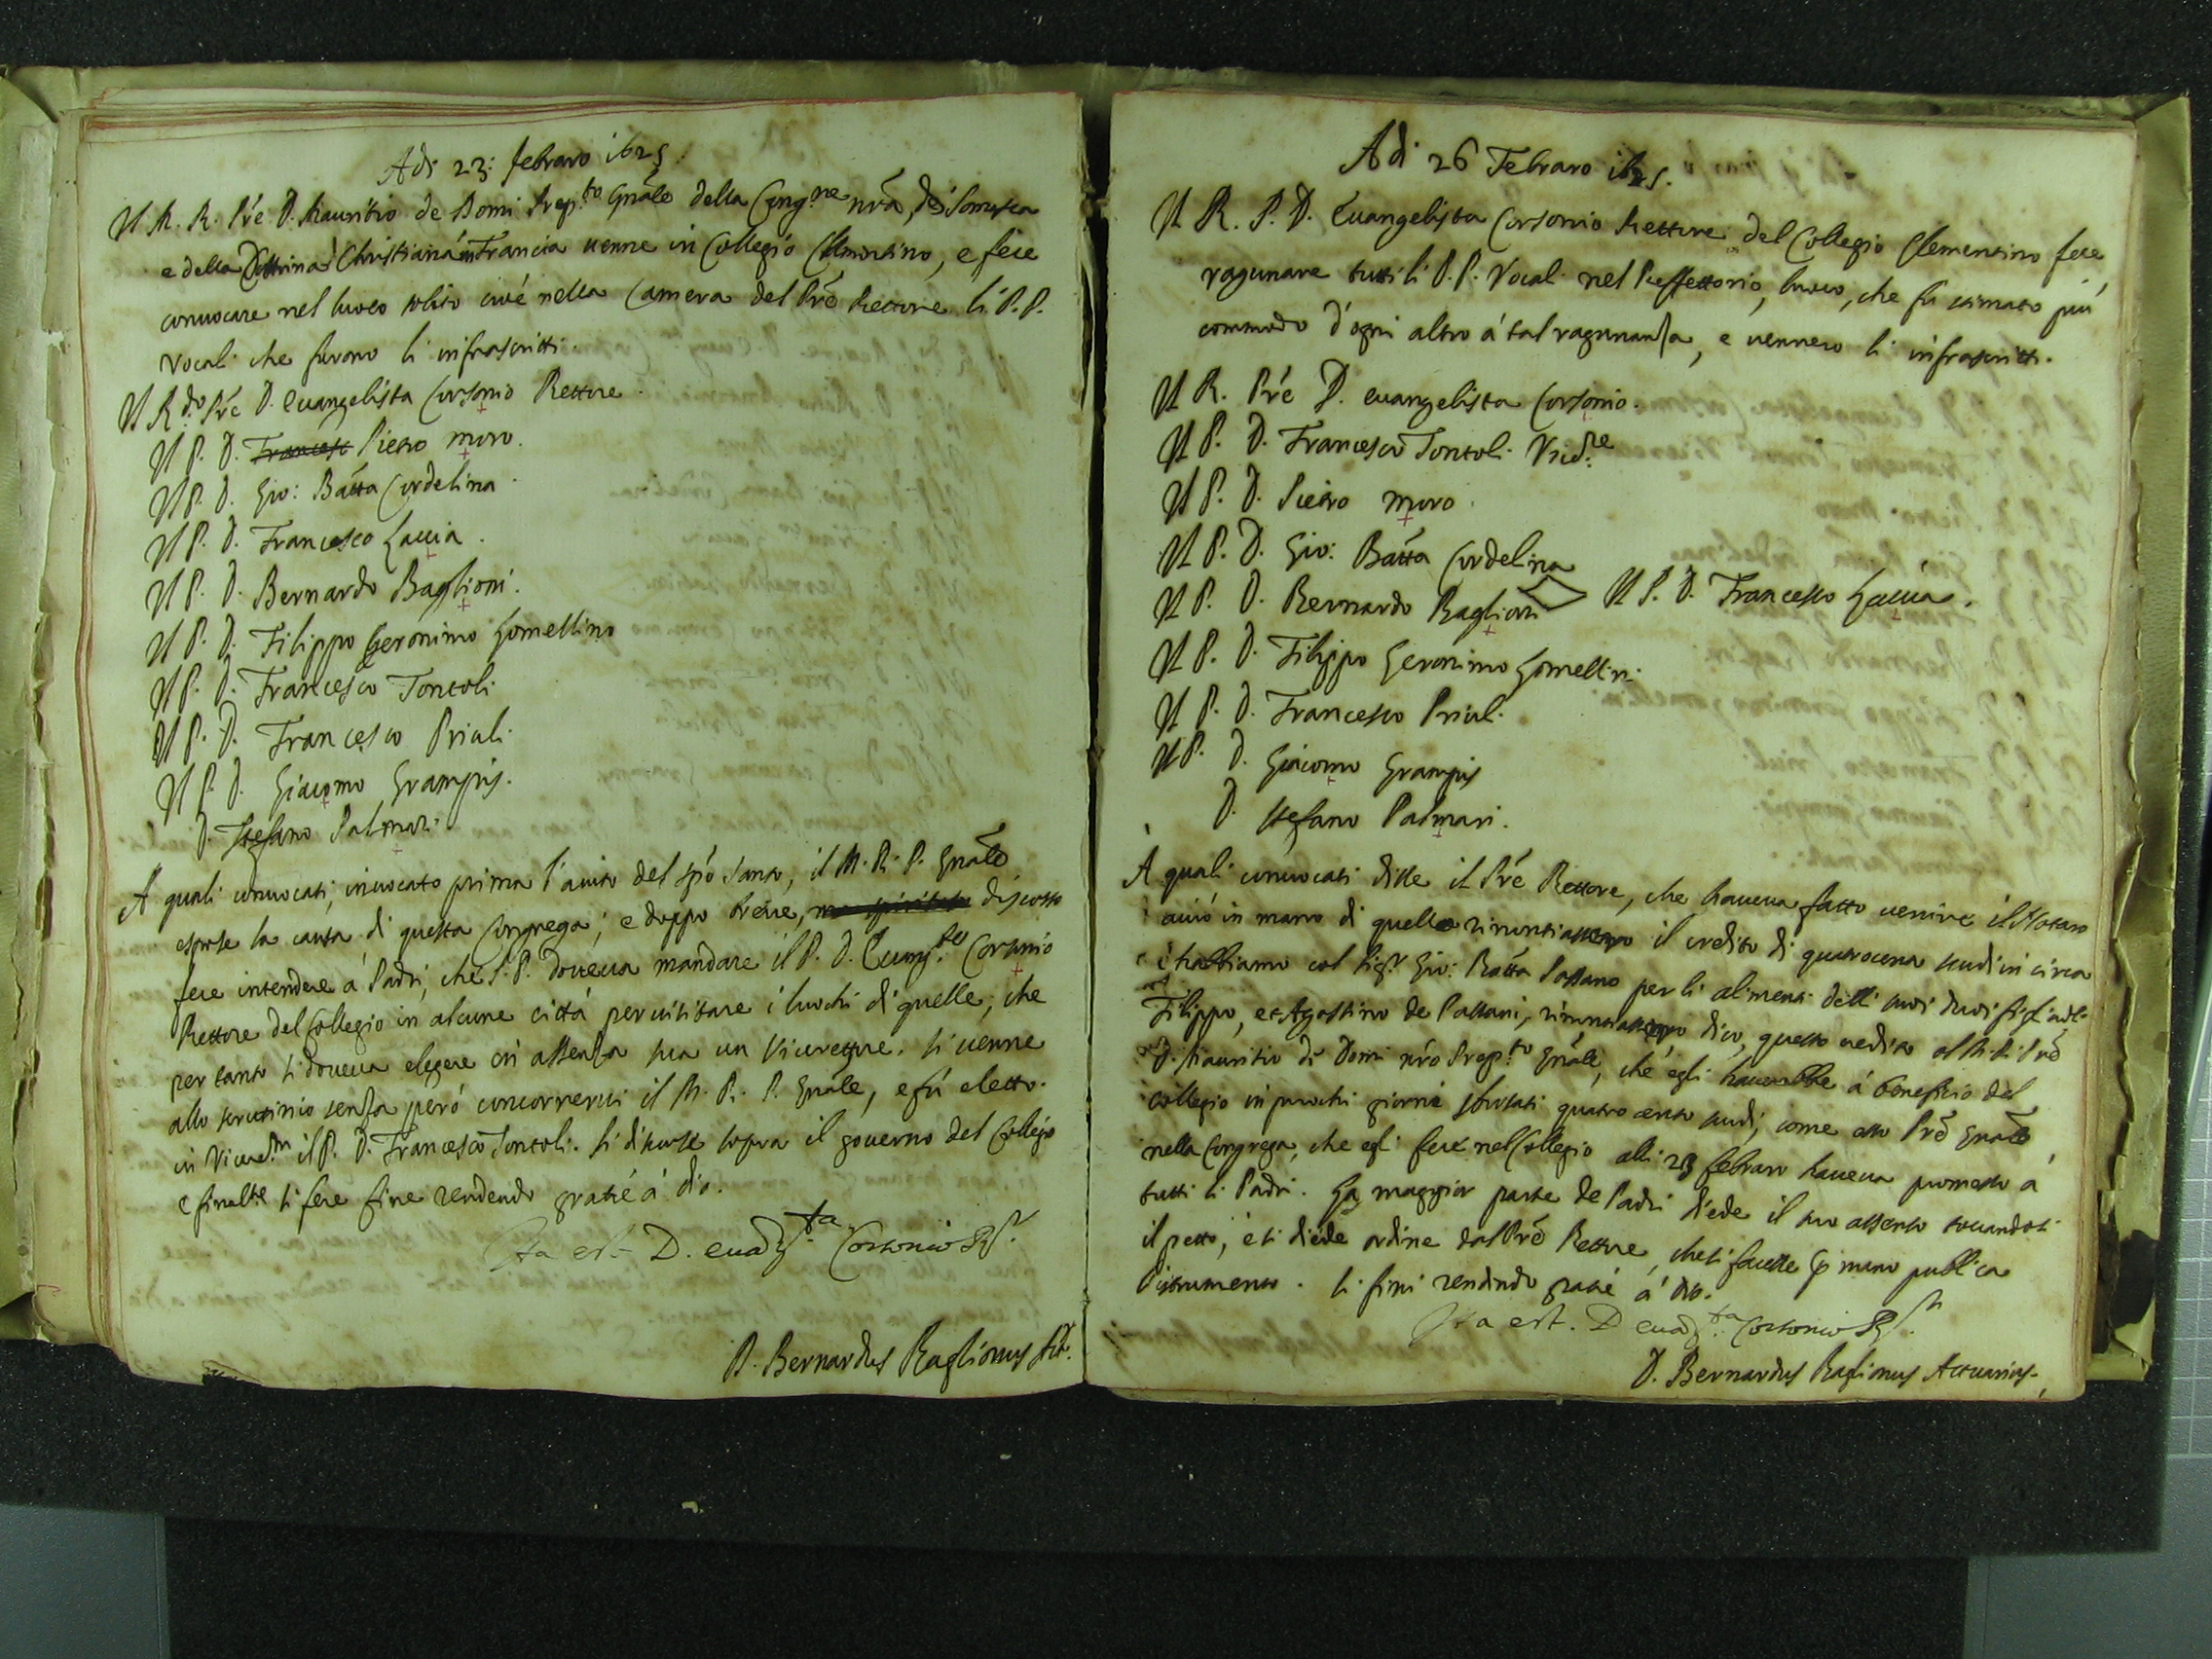 Adi 23: febraro 1625.
Il M. R. Pre D. Mauritio de Domi Prep.to Gnāle della Cong.ne nrā, de Somasca
e della Dottrina Christiana in Francia venne in Collegio Clementino, e fece
convocare nel luoco solito cioè nella Camera del Prē Rettore li P.P.
Vocali che furono li infrascritti.
Il R.do Pre D. Evangelista Cortonio Rettore.
Il P. D. Francesc Pietro Moro.
Il P. D. Gio: Batta Cordelina.
Il P. D. Francesco Laccia.
Il P. D. Bernardo Baglioni.
Il P. D. Filippo Geronimo Lomellino
Il P. D. Francesco Tontoli
Il P. D. Francesco Priuli.
Il P. D. Giacomo Grampis.
D. Stefano Palmari.
A quali convocati, invocato prima l'aiuto del Spō Santo, il M. R. P. Gnāle
espose la causa di questa Congrega; e doppo breve, discorso
fece intendere à Padri, che S. P. doveva mandare il P. D. Evang.ta Cortonio
Rettore del Collegio in alcune città per visitare i luochi di quelle, che
per tanto si doveva elegere in assenza sua un Vicerettore. Si venne
allo scrutinio senza però concorrervi il M. R. P. Gnāle, e fù eletto
in il P. D. Francesco Tontoli. Si discorse sopra il governo del Collegio
e finalte si fece fine rendendo gratie à dio.
Ita est D. evang.ta Cortonio Rr.
D. Bernardus Baglionus Act.
Adi 26 Febraro 1625.
Il R. P. D. Evangelista Cortonio Rettore del Collegio Clementino fece
ragunare tutti li P.P. Vocali nel Reffettorio, luoco, che fu stimato più
commodo d'ogni altro à tal ragunanza, e vennero li infrascritti.
Il R. Pre D. evangelista Cortonio.
Il P. D. Francesco Tontoli Vicere
Il P. D. Pietro Moro.
Il P. D. Gio: Batta Cordelina
Il P. D. Bernardo Baglioni Il P. D. Francesco Laccia.
Il P. D. Filippo Geronimo Lomellini.
Il P. D. Francesco Priuli.
Il P. D. Giacomo Grampis
D. Stefano Palmari.
A quali convocati disse il Pre Rettore, che haveva fatto venire il Notaro
acciò in mano di quello rinuntiassemo il credito di quatrocento scudi in circa
c'habbiamo col Sig.r Gio: Batta Passano per li alimenti delli suoi due figliuoli
Filippo, et Agostino de Passani, rinuntiassemo dico, questo credito al M. R. Prē
D. Mauritio de Domi nrō Prep.to Gnāle, che egli haverebbe à beneficio del
collegio in puochi giorni sborsati quatro cento scudi, come esso Prē Gnāle
nella Congrega, che egli fece nel Collegio alli 23 febraro haveva promesso à
tutti li Padri. La maggior parte de Padri diede il suo assenso toccandosi
il petto, e si diede ordine dal Prē Rettore, che si facesse p mano publica
l'istrumento. Si finì rendendo gratie à dio.
Ita est. D evang.ta Cortonio Rr.
D. Bernardus Baglionus Actuarius.